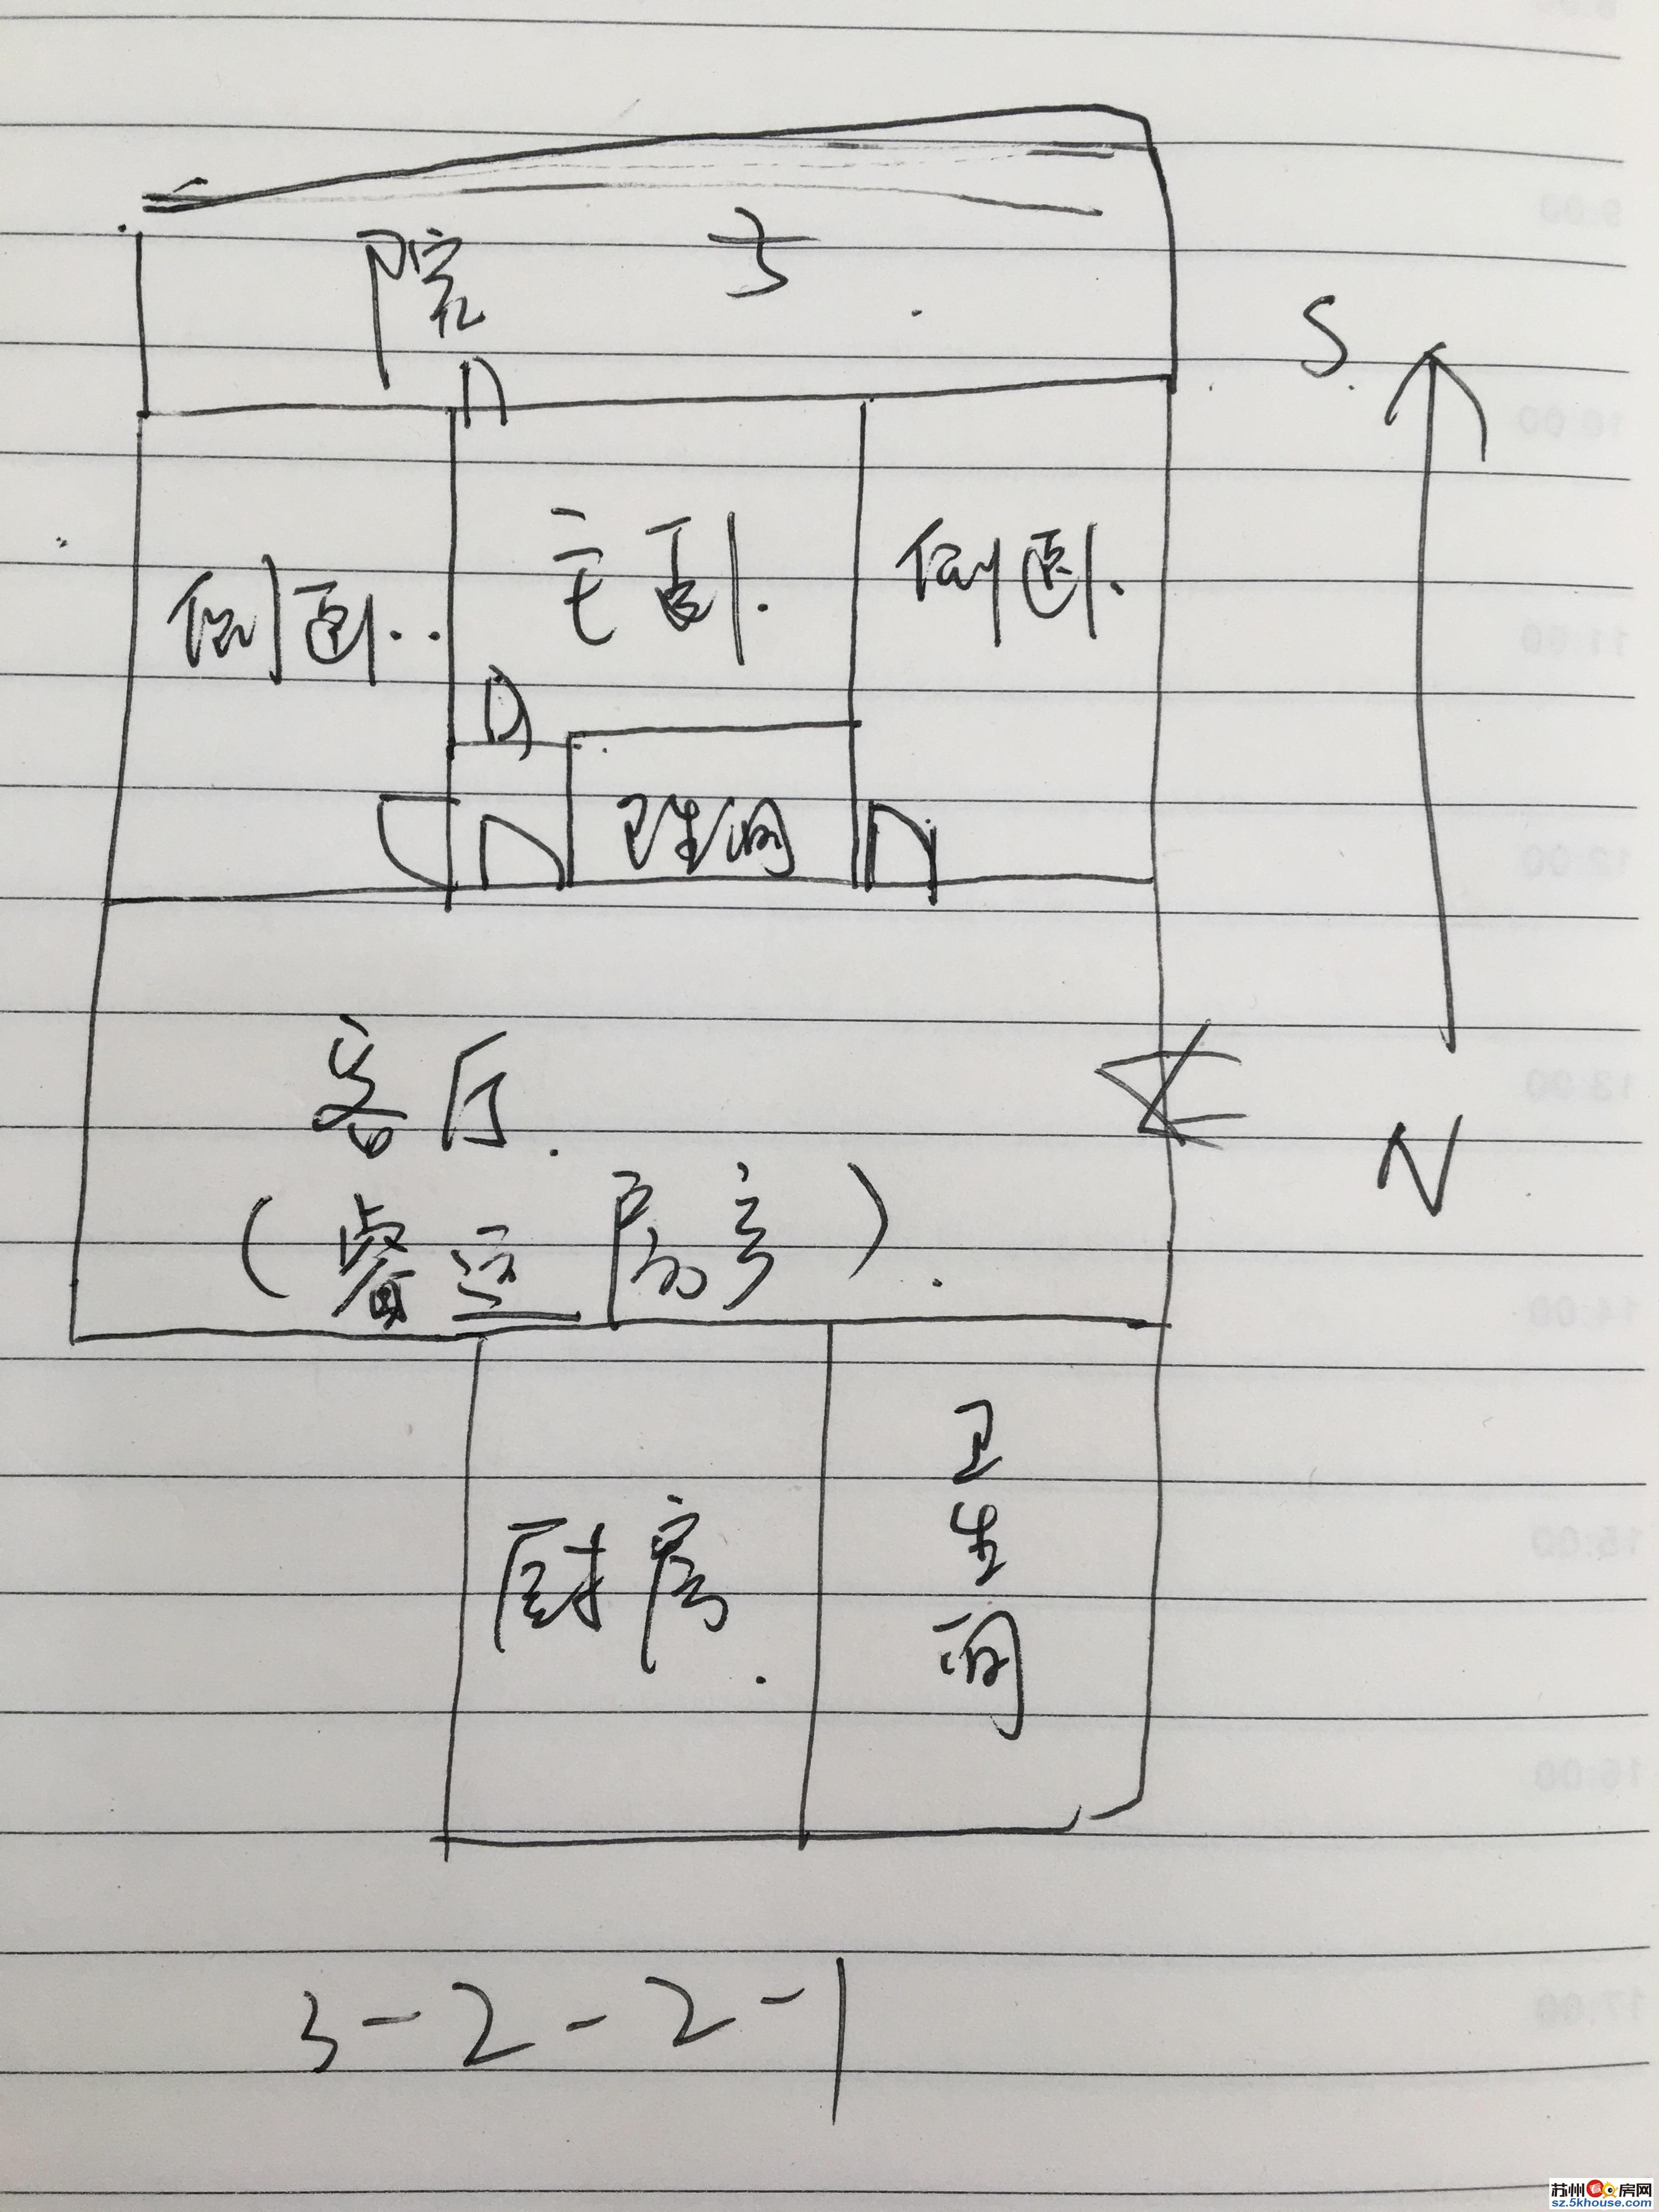 院子
S
侧卧
主卧
侧卧
卫生间
客厅
N
厨房
卫
生
间
3-2-2-1
苏州房网
sz.5khouse.com
9:00
10:00
11:00
12:00
13:00
14:00
15:00
16:00
17:00